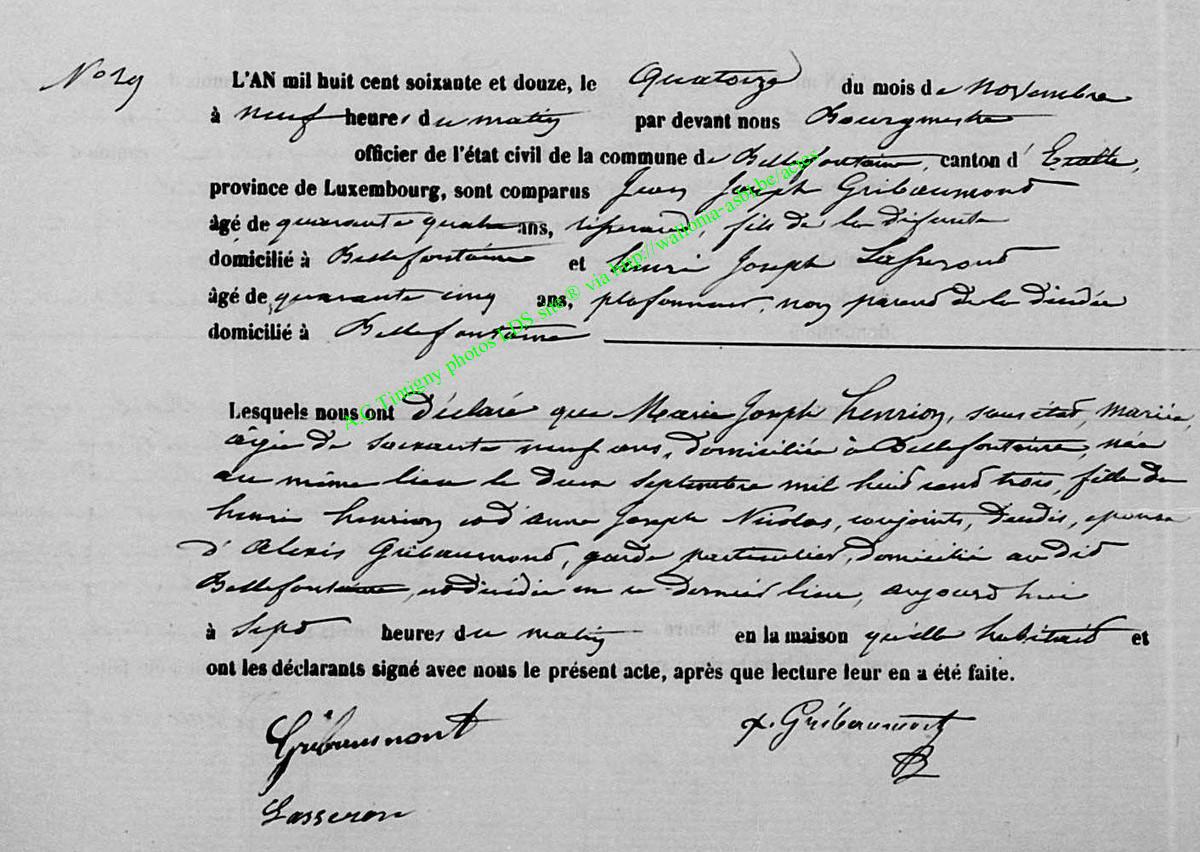 N° 29
L'AN mil huit cent soixante et douze, le Quatorze du mois de Novembre
à neuf heures du matin par devant nous Bourgmestre
officier de l'état civil de la commune de Bellefontaine, canton d'Etalle,
province de Luxembourg, sont comparus Jean Joseph Gribaumont
âgé de quarante quatre ans, fils de la défunte
domicilié à Bellefontaine et henri Joseph
âgé de quarante cinq ans, plafonneur, non parent de la décédée
domicilié à Bellefontaine
Lesquels nous ont déclaré que Marie Joseph henrion, sans état, mariée,
âgée de soixante neuf ans, domiciliée à Bellefontaine, née
au même lieu le deux Septembre mil huit cent trois, fille de
henri henrion et d'anne Joseph Nicolas, conjoints, décédés, épouse
d'Alexis Gribaumont, garde particulier, domicilié audit
Bellefontaine, est décédée en ce dernier lieu, aujourd'hui
à sept heures du matin en la maison qu'elle habitait et
ont les déclarants signé avec nous le présent acte, après que lecture leur en a été faite.
Gribaumont Gribaumont
Lasseron
A.C Tintigny photos LDS site® via http://wallonia-asbl.be/actes